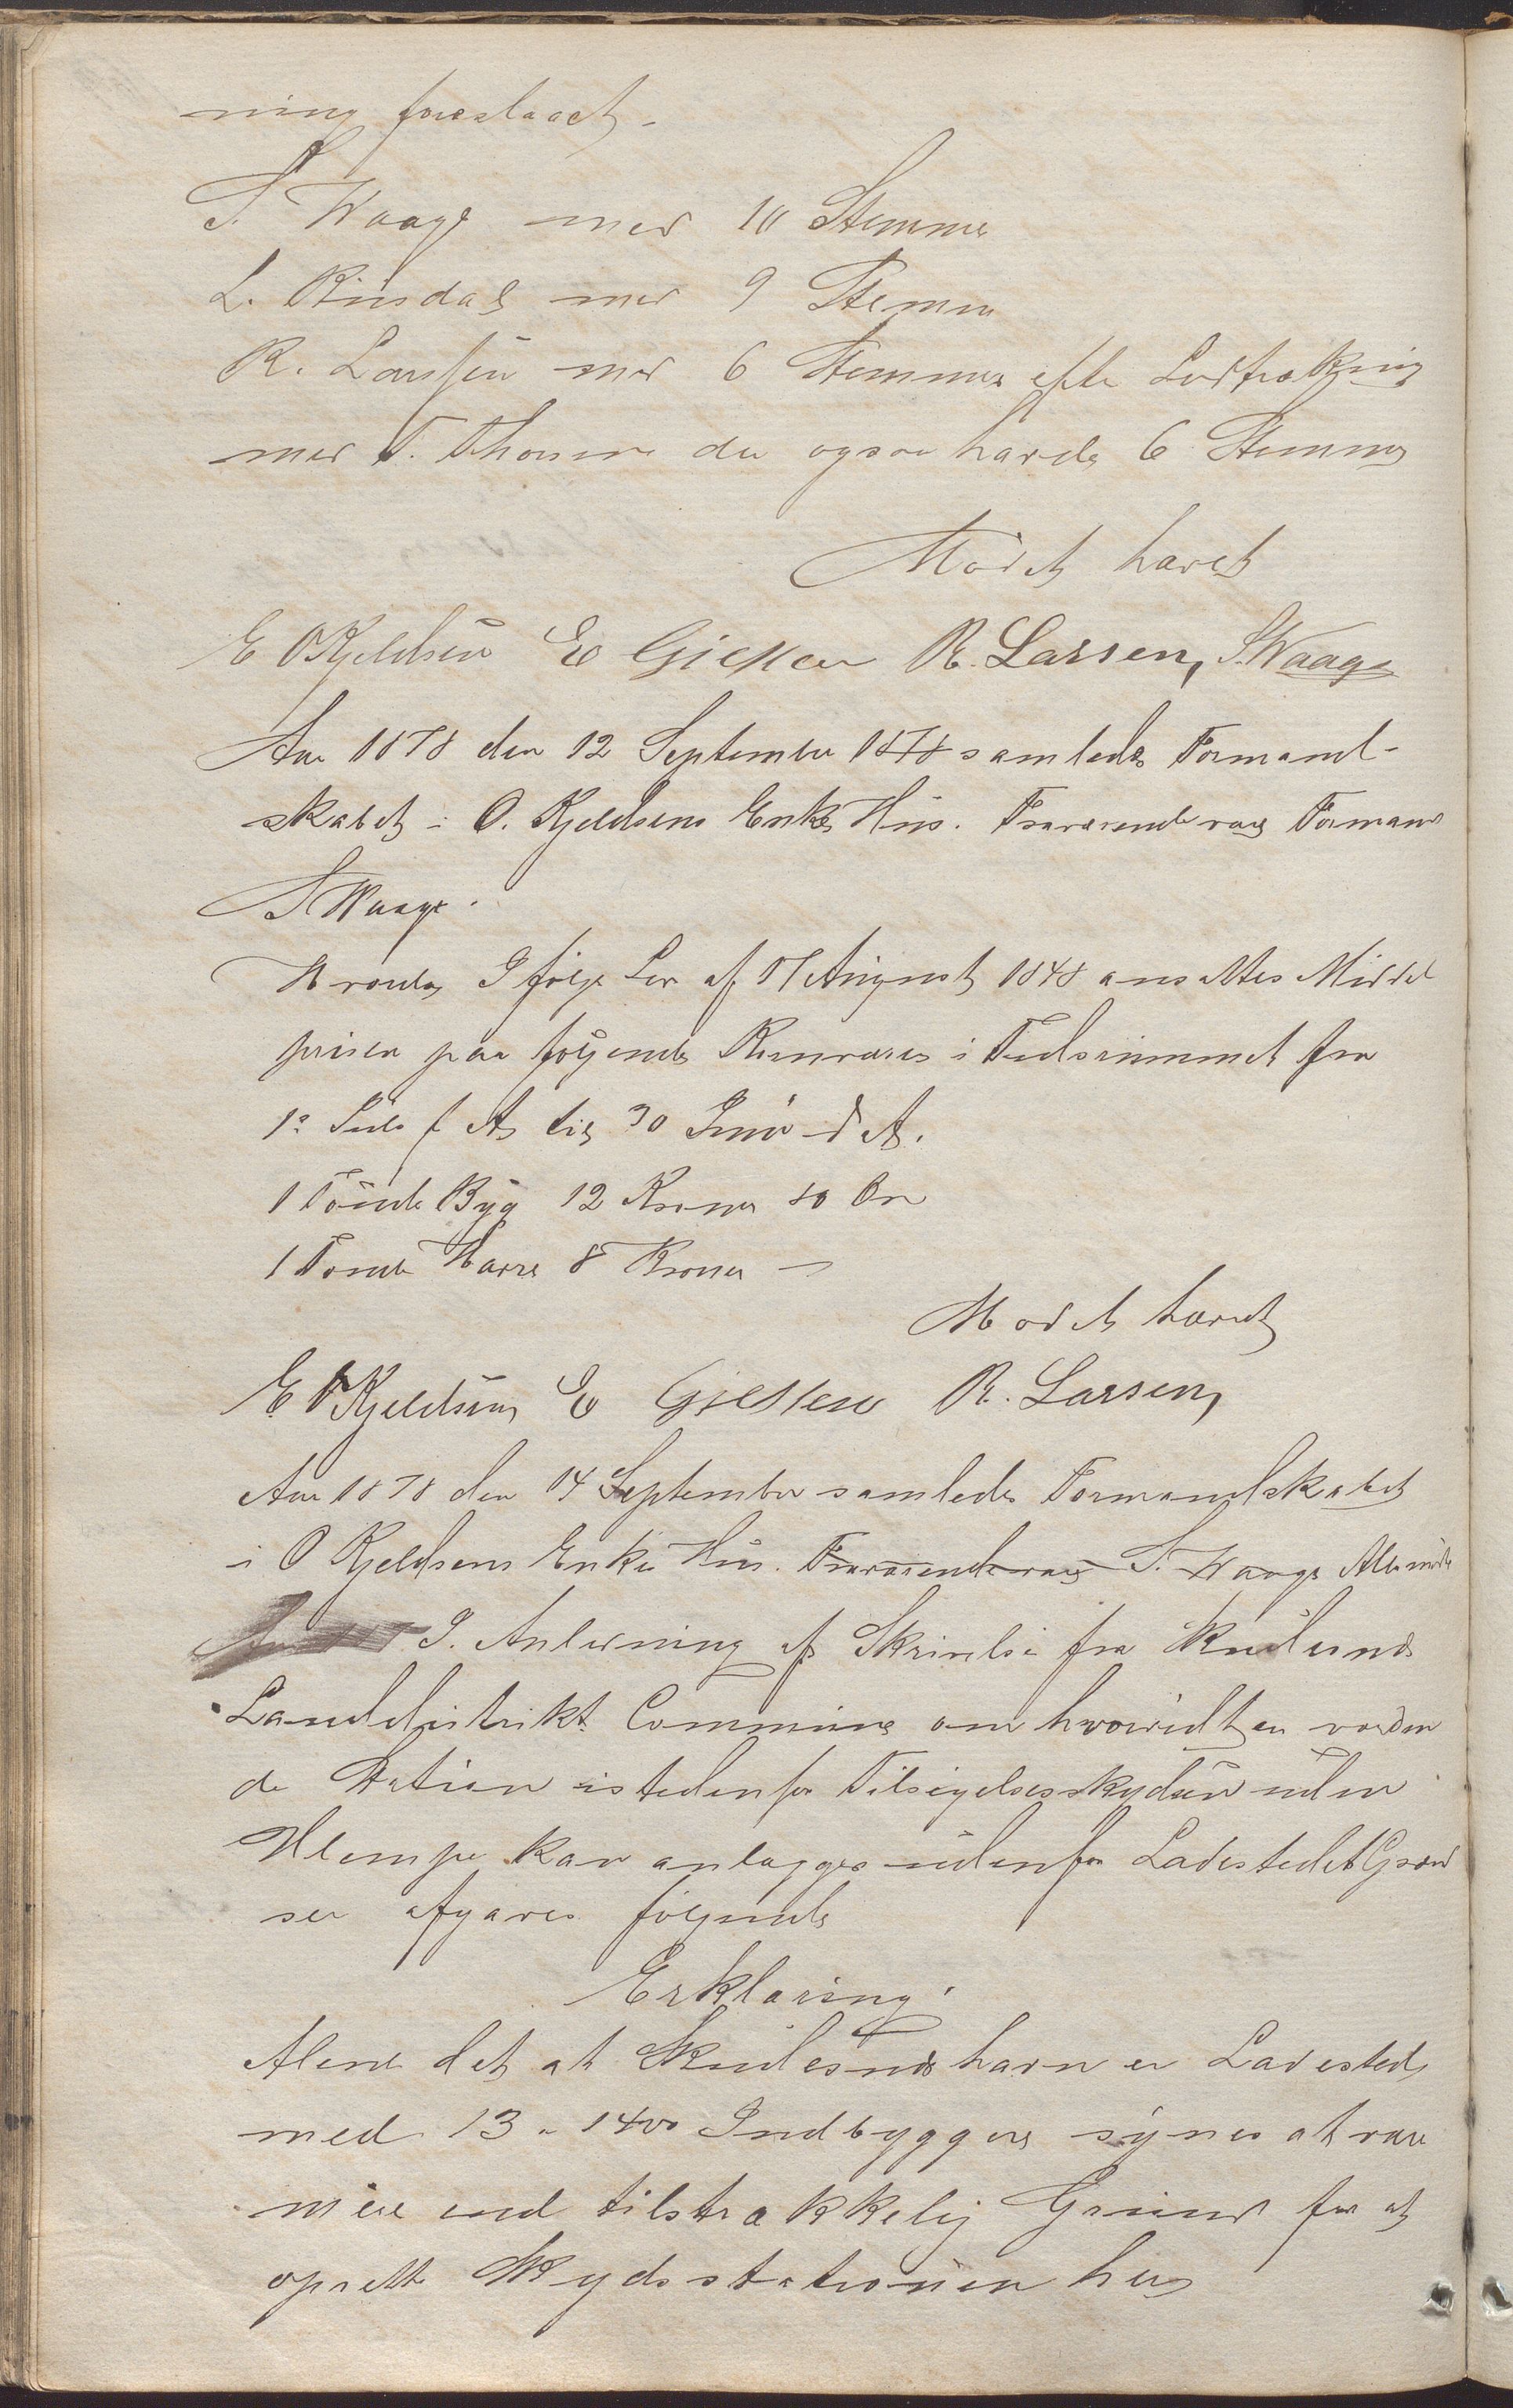 ning foreslaaet.
S. Waage med 10 Stemmer
L. Rinsdal med 9 Stemm
R. Larssen med 6 Stemmer efter Lodtrækning
med T. Thorsen der ogsaa havde 6 Stemmer
Mödet hævet
E O Kjeldsen E Giessen R. Larsen, S. Waage
Aar 1878 den 12 September 1878 samledes Formand-
skabet i O. Kjeldsens Enkes Hus. Fraværende var Formand
S Waage.
I følge Lov af 17 August 1848 ansattes Middel
prisen paa følgende Kornvarer i Tidsrummet fra
1ste Juli f A til 30 Juni d A.
1 Tönde Byg 12 Kroner 80 Öre
1 Tönde Havre 8 Kroner –
Mödet hævet
E O Kjeldsen E Giessen R. Larsen,
Aar 1878 den 14 September samledes Formandskabet
i O Kjeldsens Enkes Hus. Fraværende var S. Waage Alle mödte
I Anledning af Skrivelse fra Skudesnes
Landdistrikt Commune om hvorvidt en
de Station istedenfor Tilsigelsesskyds uden
Ulempe kan anlægges udenfor Ladestedets Græn
ser afgaves følgende
Erklæring.
Alene det at Skudesneshavn er Ladested
med 13 a 1400 Indbyggere synes at være
mere end tilstrækkelig Grund for at
oprette Skydsstationen her